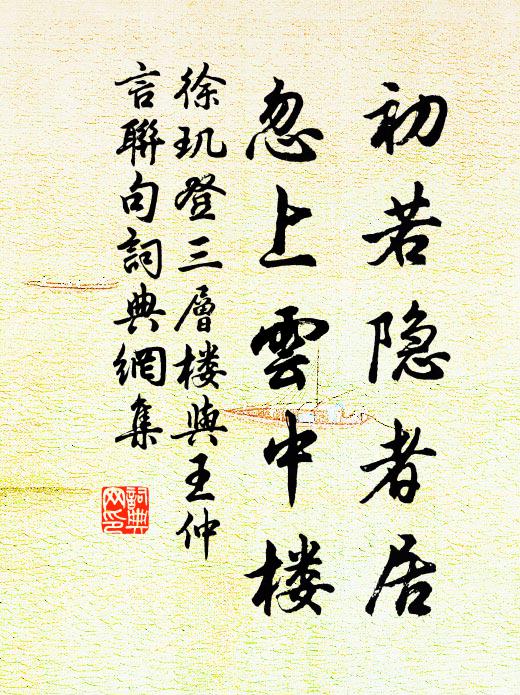 初若隐者居
忽上雲中楼
徐玑登三層楼與王仲
言聯句詞典網集
詞典
网印